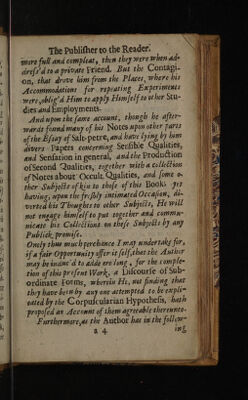 The Publisher to the Reader.
were full and compleat, then they were when ad-
dress'd to a private Friend. But the Contagi-
on, that drove him from the Places, where his
Accommodations for repeating Experiments
were, oblig'd Him to apply Himself to other Stu-
dies and Employments.
And upon the same account, though he after-
wards found many of his Notes upon other parts
of the Essay of Salt-petre, and have lying by him
divers Papers concerning Sensible Qualities,
and Sensation in general, and the Production
of Second Qualities, together with a collection
of Notes about Occult Qualities, and some o-
ther Subjects of kin to those of this Book; yet
having, upon the firstly intimated Occasion, di-
verted his Thoughts to other Subjects, He will
not engage himself to put together and commu-
nicate his Collections on these Subjects by any
Publick promise.
Onely thus much perchance I may undertake for,
if a fair Opportunity offer it self, that the Author
may be induc'd to adde ere long, for the comple-
tion of this present Work, a Discourse of Sub-
ordinate Forms, wherein He, not finding that
they have been by any one attempted to be expli-
cated by the Corpuscularian Hypothesis, hath
proposed an Account of them agreeable thereunto.
Furthermore, as the Author has in the follow-
a 4 ing